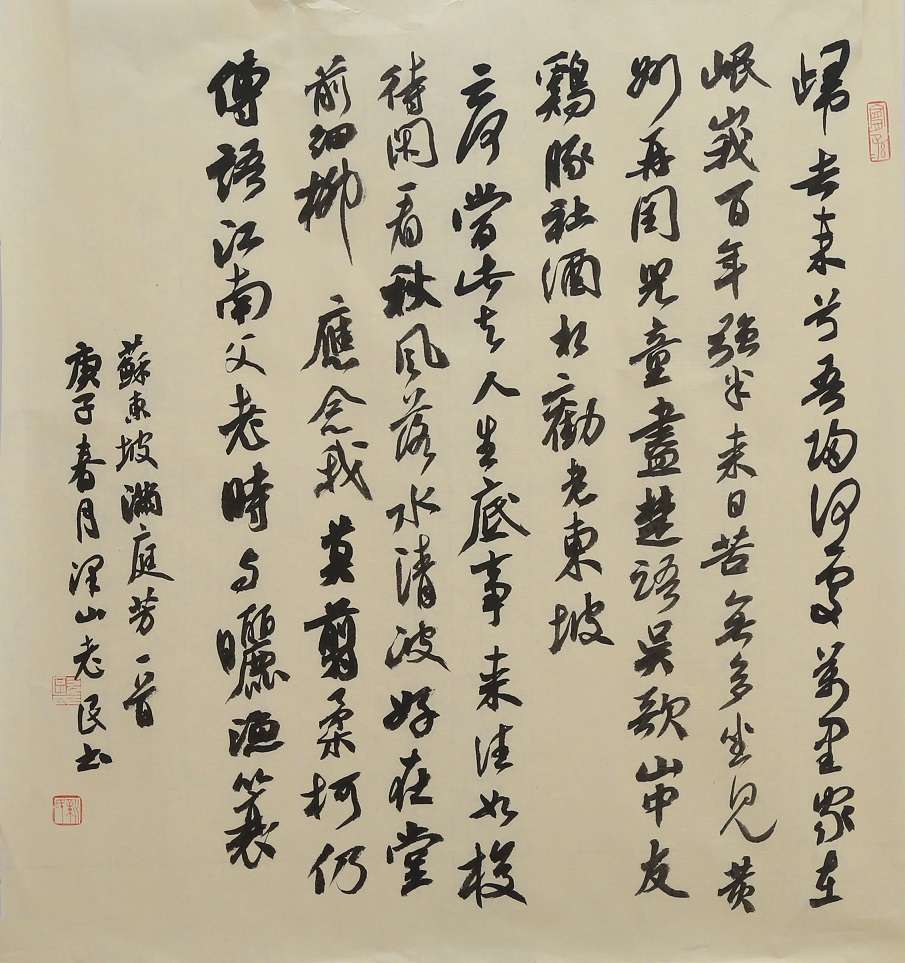 歸去来兮吾歸何處萬里家在
岷峨百年強半来日苦無多坐見黄
州再閏兒童盡楚語吳歌山中友
鷄豚社酒相勸老東坡
云何當此去人生底事来往如梭
待閑看秋風落水清波好在堂
前細柳應念我莫翦柔柯仍
傳語江南父老時与曬漁蓑
蘇東坡滿庭芳一首
庚子春月山老民书